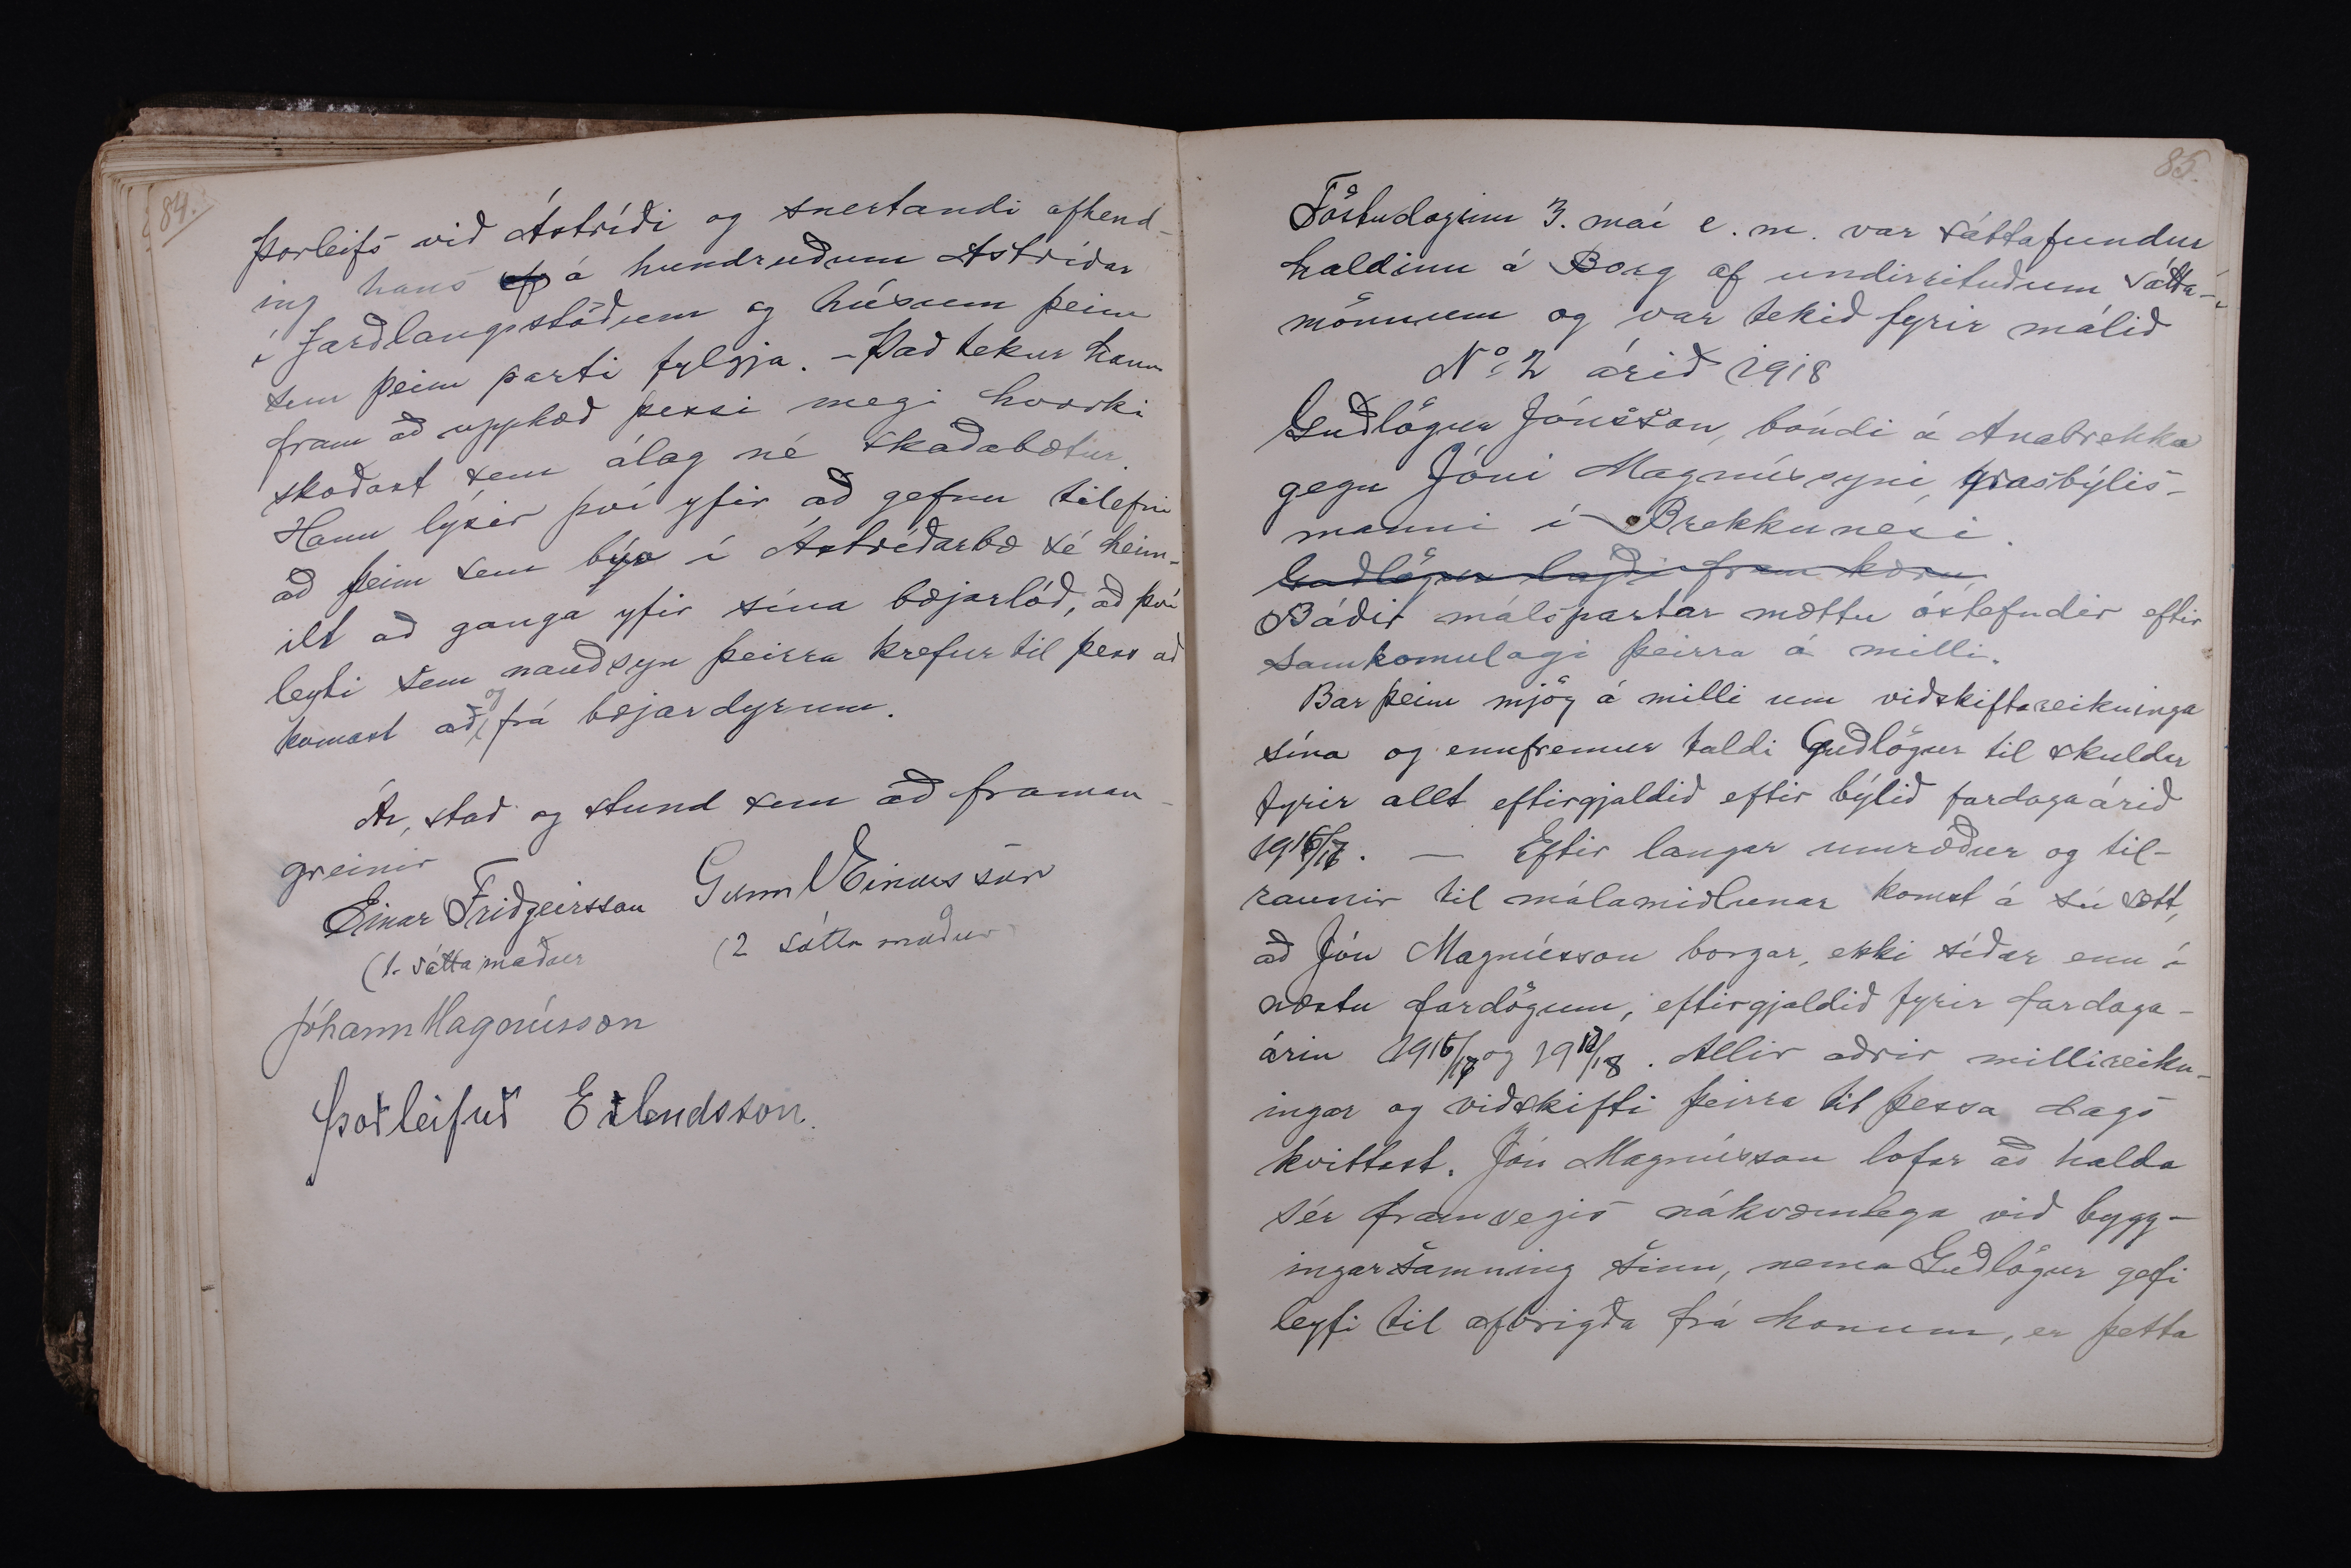 84.
Þorleifs við Ástríði og snertandi afhend-
ing hans af á hundruðum Ástríðar
í Jarðlangsstöðum og húsum þeim
sem þeim parti fylgja. – Það tekur hann
fram að upphæð þessi megi hvorki
skoðast sem álag né skaðabætur.
Hann lýsir því yfir að gefnu tilefni
að þeim sem býr í Ástríðarbæ sé heim-
ilt að ganga yfir sína bæjarlóð, að því
leyti sem nauðsyn þeirra krefur til þess að
komast að og frá bæjardyrum.
Ár, stað og stund sem að framan-
greinir
Einar Friðgeirsson Gunn Einarsson
(1. sáttamaður (2 sátta maður
Jóhann Magnússon
Þorleifur Erlendsson.
85.
Föstudaginn 3. maí e. m. var sáttafundur
haldinn á Borg af undirrituðum sátta-
mönnum og var tekið fyrir málið
No 2 árið 1918
Guðlögur Jónsson, bóndi á Anabrekku
gegn Jóni Magnússyni, grasbýlis-
manni í Brekkunesi.
Guðlögur lagði fram kæru
Báðir málspartar mættu óstefndir eftir
samkomulagi þeirra á milli.
Bar þeim mjög á milli um viðskiftareikninga
sína og ennfremur taldi Guðlögur til skuldar
fyrir allt eftirgjaldið eftir býlið fardagaárið
1916/17. — Eftir langar umræður og til-
raunir til málamiðlunar komst á sú sætt,
að Jón Magnússon borgar, ekki síðar enn í
næstu fardögum, eftirgjaldið fyrir fardaga-
árin 1916/17 og 1917/18. Allir aðrir millireikn-
ingar og viðskifti þeirra til þessa dags
kvittast. Jón Magnússon lofar að halda
sér framvegis nákvæmlega við bygg-
ingarsamning sinn, nema Guðlögur gefi
leyfi til afbrigða frá honum, er þetta